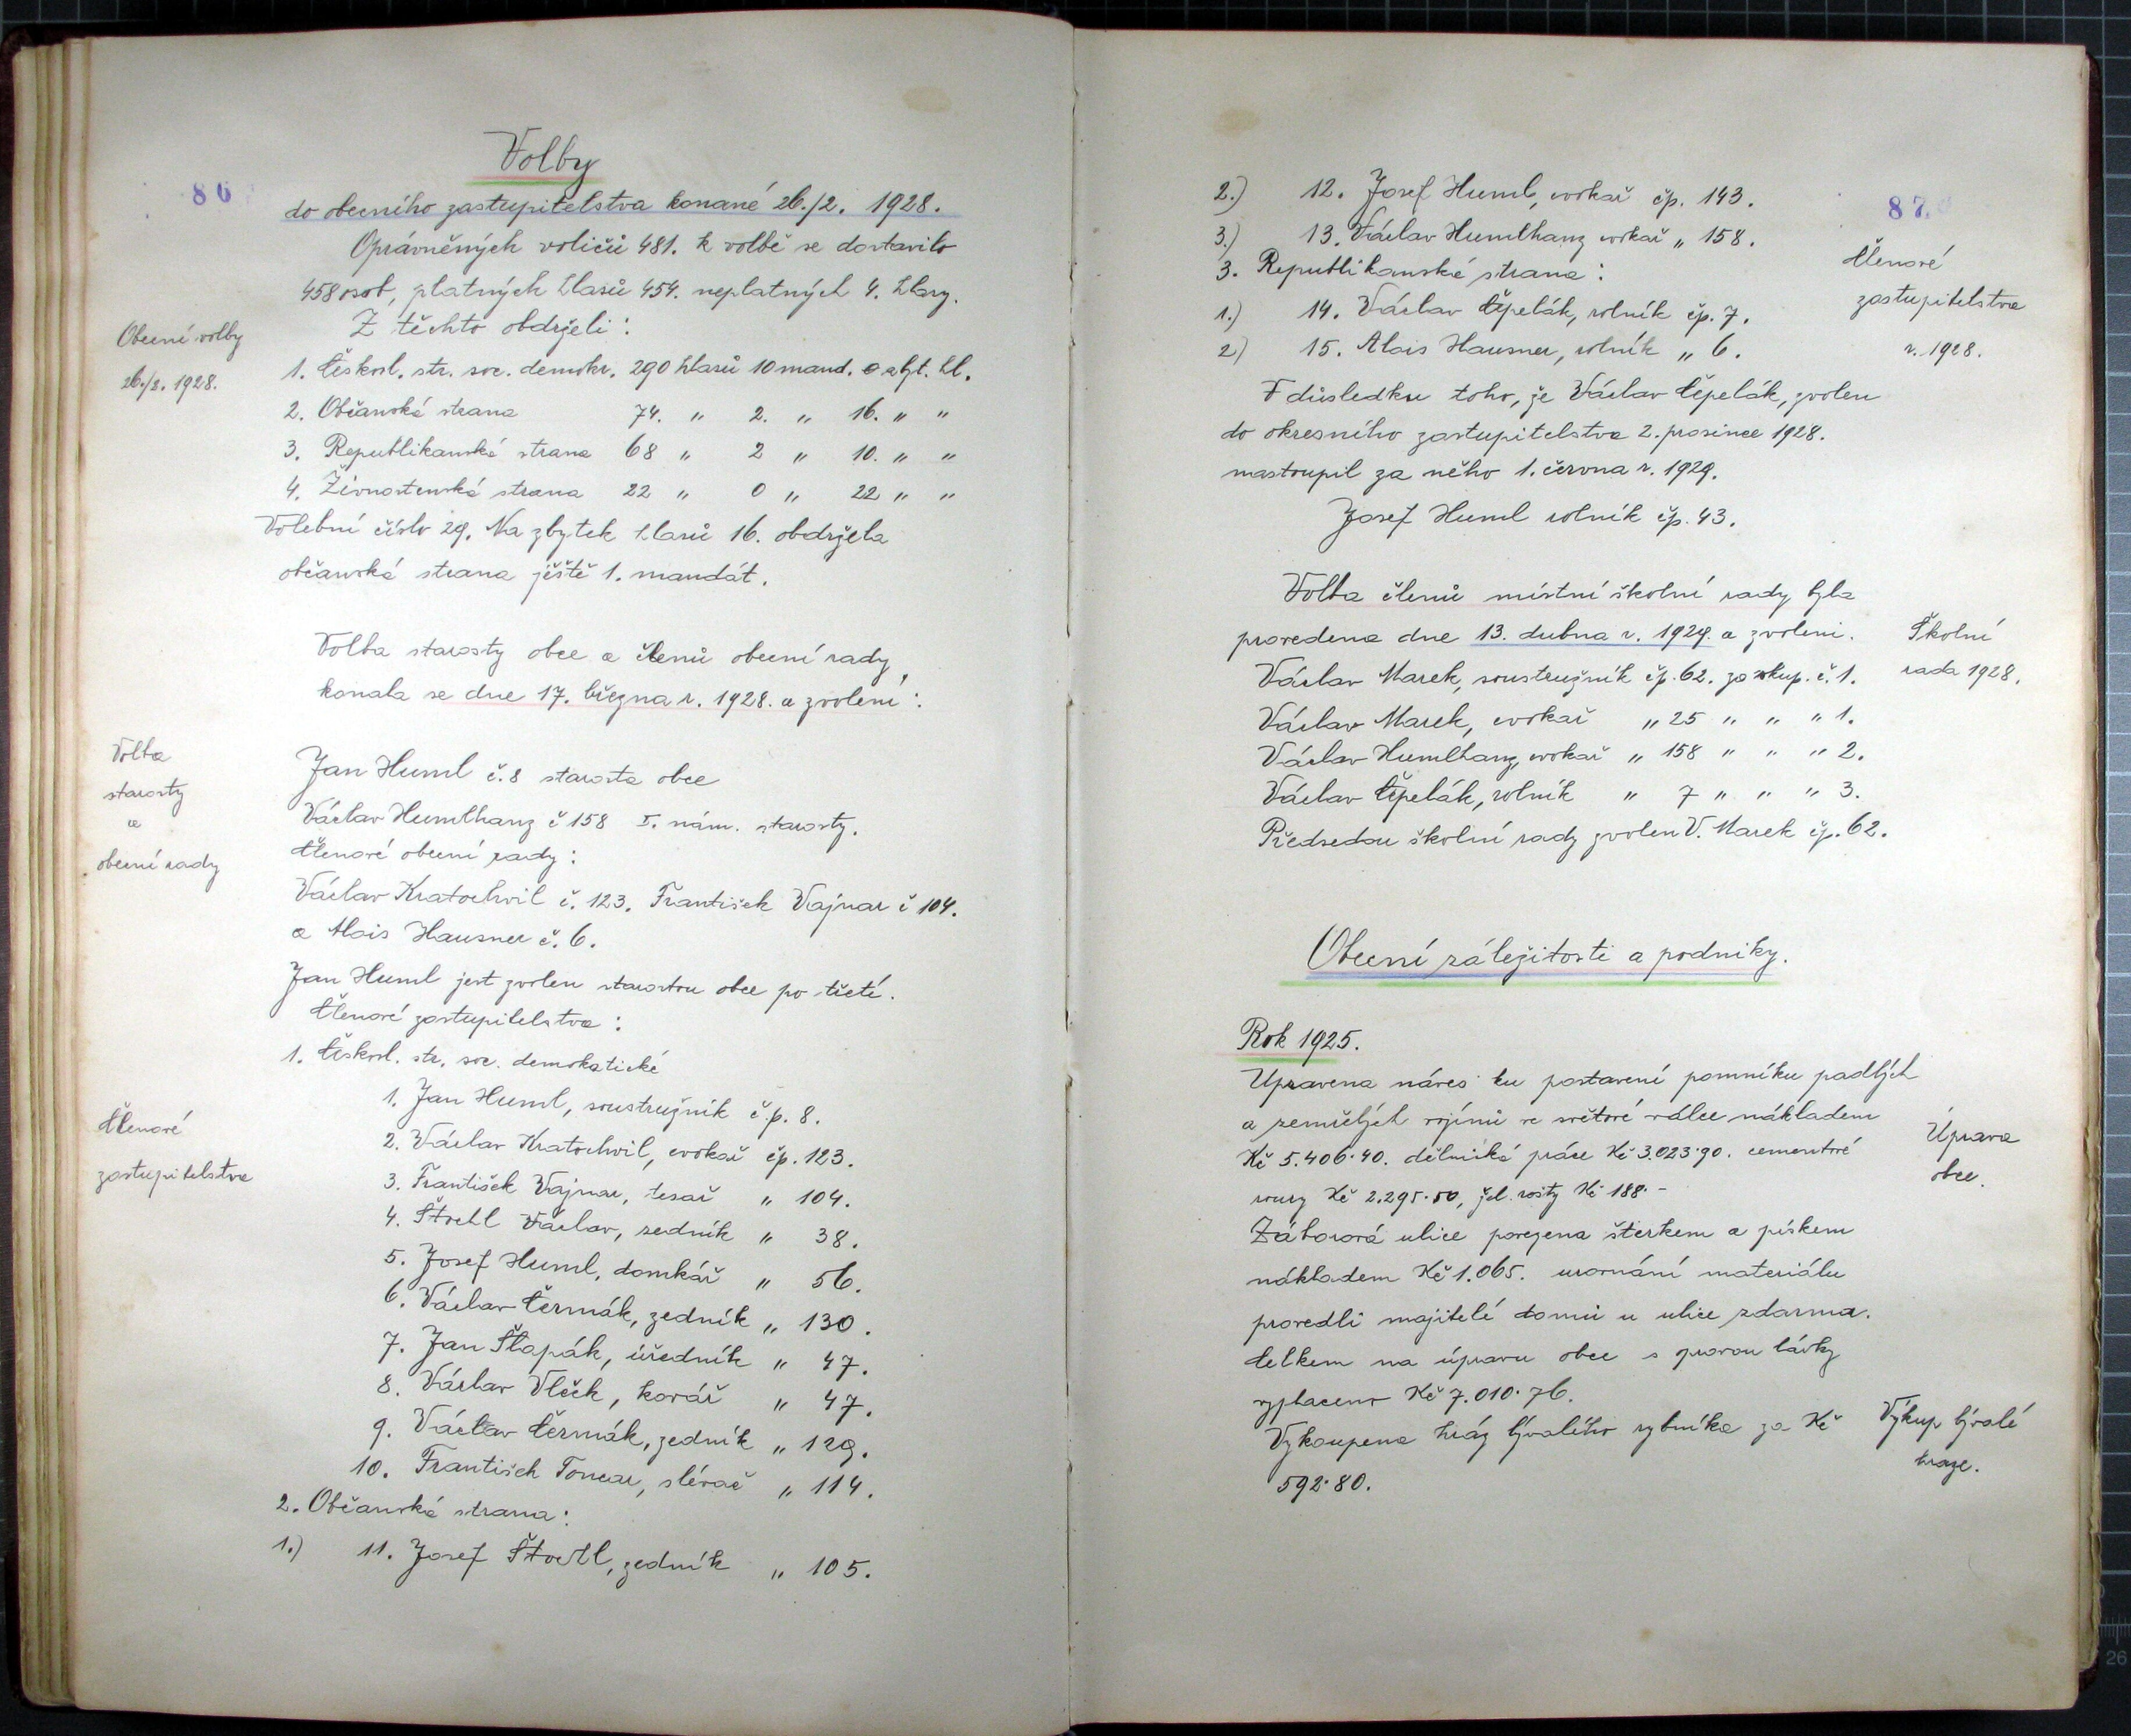 86
Volby
do obecního zastupitelstva konané 26./2. 1928.
Oprávněných voličů 481. k volbě se dostavilo
458 osob, platných hlasů 454. neplatných 4. hlasy.
Z těchto obdrželi:
Obecní volby
26./2. 1928.
1. Českosl. str. soc. demokr. 290 hlasů 10 mand. 0 zbyt. hl.
2. Občanská strana 74. " 2. " 16. " "
3. Republikanská strana 68 " 2 " 10. " "
4. Živnostenská strana 22 " 0 " 22 " "
Volební číslo 29. Na zbytek hlasů 16. obdržela
občanská strana ještě 1. mandát.
Volba starosty obce a členů obecní rady,
konala se dne 17. března r. 1928. a zvoleni:
Volba
starosty
a
obecní rady
Jan Huml č. 8 starosta obce
Václav Humlhanz č 158 I. nám. starosty.
Členové obecní rady:
Václav Kratochvil č. 123. František Vajnar č 104.
a Alois Hausner č. 6.
Jan Huml jest zvolen starostou obce po třetí.
Členové zastupitelstva:
1. Českosl. str. soc. demokatické
Členové
zastupitelstva
1. Jan Huml, soustružník č.p. 8.
2. Václav Kratochvil, cvokař čp. 123.
3. František Vajnar, tesař " 104.
4. Štochl Václav, zedník " 38.
5. Josef Huml, domkář " 56.
6. Václav Čermák, zedník " 130.
7. Jan Šlapák, úředník " 47.
8. Václav Vlček, kovář " 47.
9. Václav Čermák, zedník " 129.
10. František Toncar, slévač " 114.
2. Občanská strana:
1.) 11. Josef Štochl, zedník " 105.
87.
2.) 12. Josef Huml, cvokař čp. 143.
3.) 13. Václav Humlhanz cvokař " 158.
3. Republikanská strana:
1.) 14. Václav Čepelák, rolník čp. 7.
2) 15. Alois Hausner, rolník " 6.
Členové
zastupitelstva
r. 1928.
V důsledku toho, že Václav Čepelák, zvolen
do okresního zastupitelstva 2. prosince 1928.
nastoupil za něho 1. června r. 1929.
Josef Huml rolník čp. 43.
Volba členů místní školní rady byla
provedena dne 13. dubna r. 1929. a zvoleni.
Školní
rada 1928.
Václav Marek, soustružník čp. 62. za skup. č. 1.
Václav Marek, cvokař " 25 " " " 1.
Václav Humlhanz, cvokař " 158 " " " 2.
Václav Čepelák, rolník " 7 " " " 3.
Předsedou školní rady zvolen V. Marek čp. 62.
Obecní záležitosti a podniky.
Rok 1925.
Upravena náves ku postavení pomníku padlých
a zemřelých vojínů ve světové válce nákladem
Kč 5.406·40. dělnická práce Kč 3.023·90. cementové
roury Kč 2.295·50, žel. rošty Kč 188·-
Úprava
obce.
Záborová ulice povezena štěrkem a pískem
nákladem Kč 1.065. urovnání materiálu
provedli majitelé domů u ulice zdarma.
Celkem na úpravu obce s opravou lávky
vyplaceno Kč 7.010·76.
Vykoupena hráz bývalého rybníka za Kč
592·80.
Výkup bývalé
hráze.
26